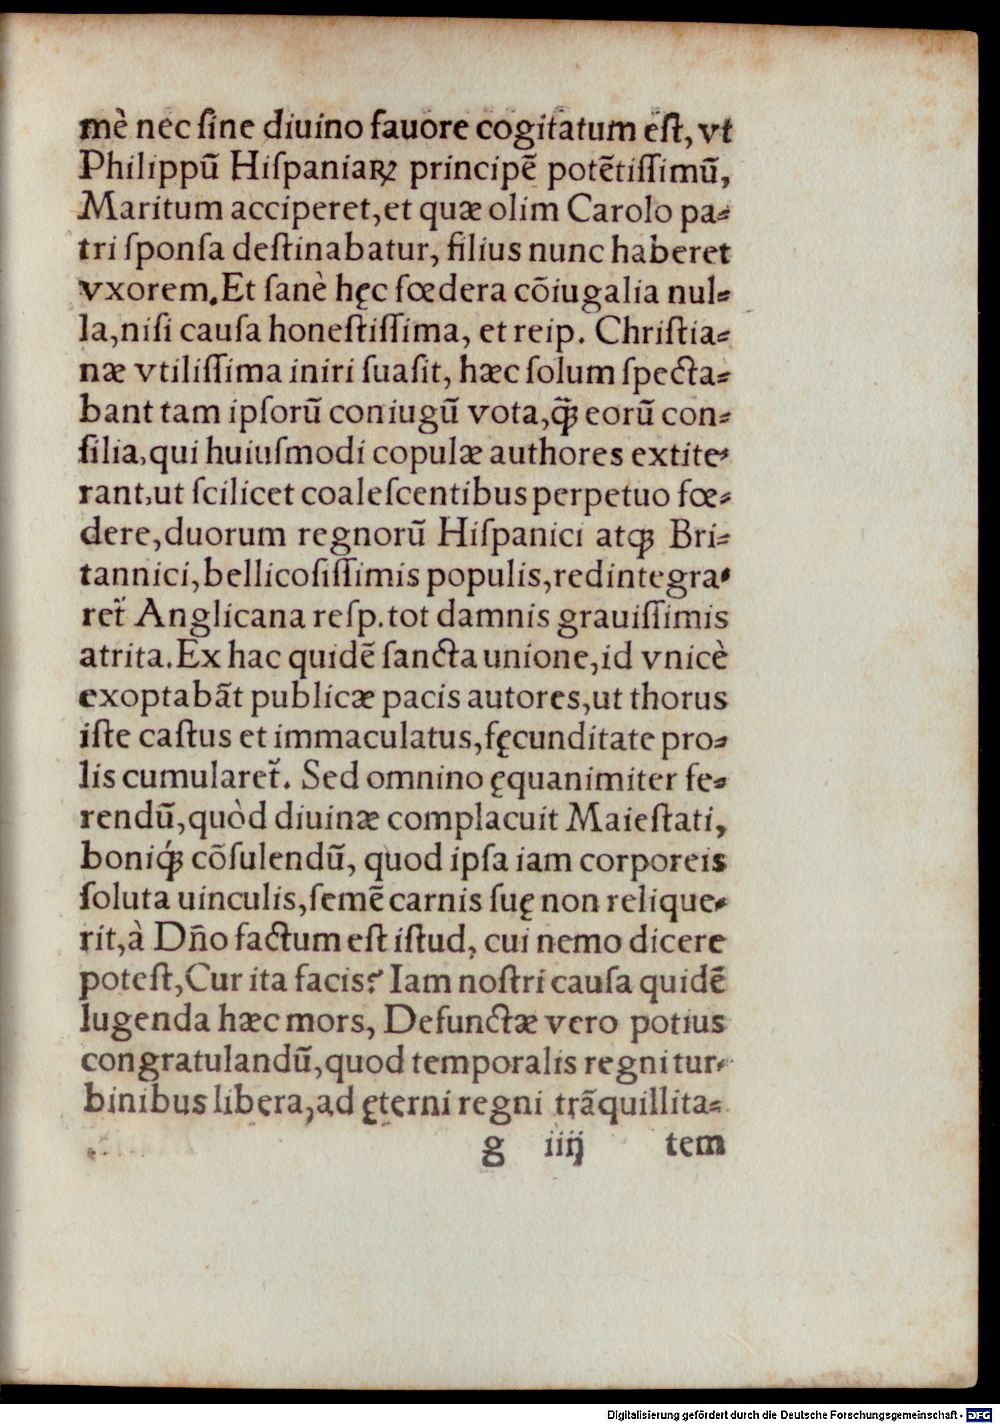 mè nec ſine diuino fauore cogitatum eſt, vt
Philippū Hiſpaniaꝝ principē potētiſſimū,
Maritum acciperet,et quæ olim Carolo pa⸗
tri ſponſa deſtinabatur, filius nunc haberet
vxorem.Et ſanè hęc fœdera cōiugalia nul⸗
la,niſi cauſa honeſtiſſima, et reip. Chriſtia⸗
næ vtiliſſima iniri ſuaſit, hæc ſolum ſpecta⸗
bant tam ipſorū coniugū vota,q̃ꝫ eorū con⸗
ſilia,qui huiuſmodi copulæ authores extite⸗
rant,ut ſcilicet coaleſcentibus perpetuo fœ⸗
dere,duorum regnorū Hiſpanici atqꝫ Bri⸗
tannici,bellicoſiſſimis populis,redintegra⸗
ret᷑ Anglicana reſp.tot damnis grauiſſimis
atrita.Ex hac quidē ſancta unione,id vnicè
exoptabāt publicæ pacis autores,ut thorus
iſte caſtus et immaculatus,fęcunditate pro⸗
lis cumularet᷑. Sed omnino ęquanimiter fe⸗
rendū,quòd diuinæ complacuit Maieſtati,
boniq́ꝫ cōſulendū, quod ipſa iam corporeis
ſoluta uinculis,ſemē carnis ſuę non relique⸗
rit,à Dño factum eſt iſtud, cui nemo dicere
poteſt,Cur ita facis? Iam noſtri cauſa quidē
lugenda hæc mors, Defunctæ vero potius
congratulandū,quod temporalis regni tur⸗
binibus libera,ad ęterni regni trāquillita⸗
g iiij tem
Digitalisierung gefördert durch die Deutsche Forschungsgemeinschaft - DFG